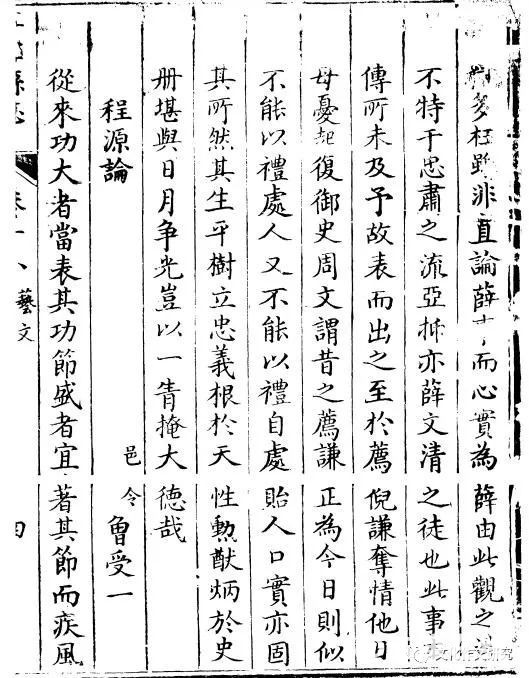 多枉雖非直論薛而心實為薛由此觀之
不特于忠肅之流亞抑亦薛文清之徒也此事
傳所未及予故表而出之至於薦倪謙奪情他日
母憂起復御史周文謂昔之薦謙正為今日則似
不能以禮處人又不能以禮自處貽人口實亦固
其所然其生平樹立忠義根於天性勳猷炳於史
册堪與日月争光豈以一眚掩大德哉
程源論
邑令 魯受一
從來功大者當表其功節盛者宜著其節而疾風
縣志 卷十 藝文